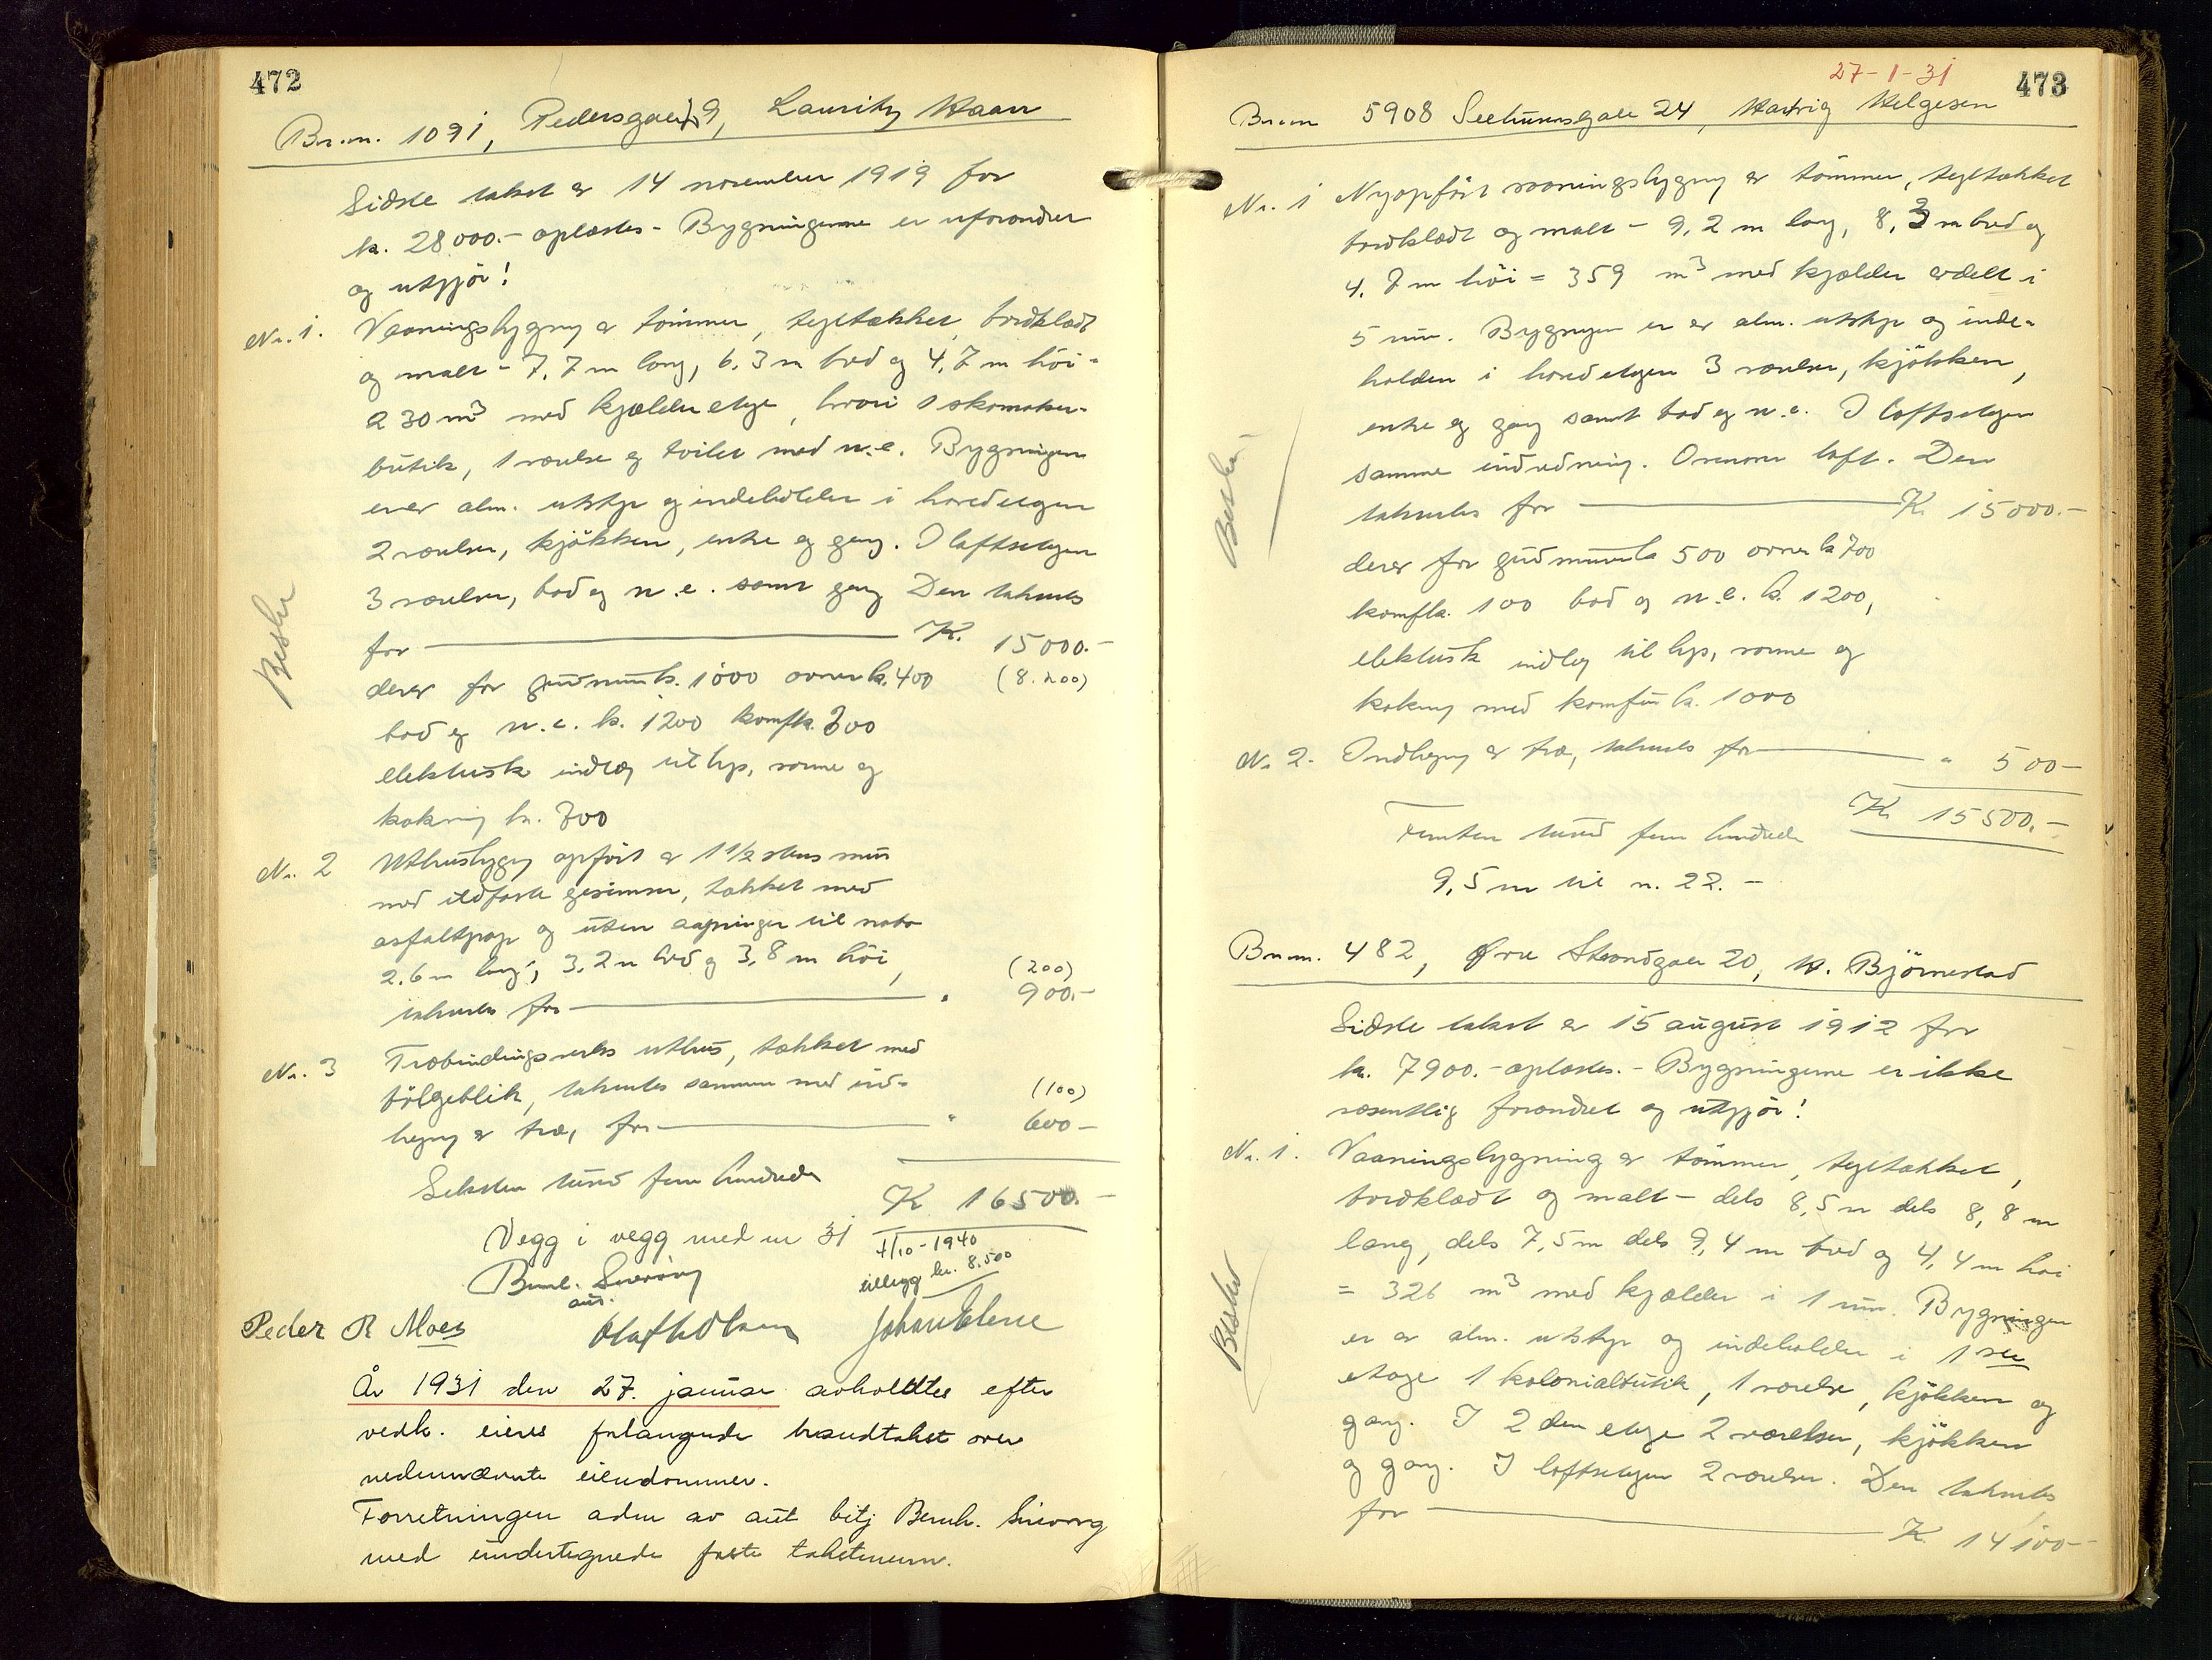 472
Br.nr. 1091, Pedersgaten 9, Lauritz Haan
Sidste takst er 14 november 1919 for
kr. 28000.- oplæstes - Bygningerne er uforandret
og utgjör!
Nr. 1. Vaaningsbygng av tömmer, tegltækket, bordklædt
og malt - 7,7 m lang, 6,3 m bred og 4,7 m höi =
230 m³ med kjælder etage, hvori 1 skomaker-
butik, 1 værelse og toilet med w.c. Bygningen
er av alm. utstyr og indeholder i hovedetagen
2 værelser, kjökken, entre og gang. I loftsetagen
3 værelser, bad og w.c. samt gang Den takseres
for K. 15000.-
derav for grundmur k. 1000 ovner k. 400 (8.200)
bad og w.c. k. 1200 komf k. 300
elektrisk indlæg til lys, varme og
kokning kr. 700
Nr. 2 Uthusbygng opfört av 1 1/2 stens mur
med ildfaste gesimser, tækket med
asfaltpap og uten aapninger til nabo
2,6 m lang, 3,2 m bred og 3,8 m höi, (200)
takseres for " 900.-
Nr. 3 Træbindingsverks uthus, tækket med
bölgeblik, takseres sammen med ind- (100)
hegng av træ, for " 600-
Seksten tusind fem hundrede K. 16500.-
Vegg i vegg med nr 31 7/10-1940
Bernh. Sivering tillegg kr. 8.500
aut.
Peder R Moes Olaf K Olsen Johan Eleve
År 1931 den 27. januar avholdtes efter
vedk. eieres forlangende brandtakst over
nedennævnte eiendommer.
Forretningen adm av aut bitj Bernh. Sivering
med undertegnede faste takstmenn.
Beskr
27-1-31
473
Br.nr 5908 Seehusensgate 24, Hartvig Helgesen
Nr. 1 Nyopfört vaaningsbygng av tömmer, tegltækket
bordklædt og malt - 9,2 m lang, 8,3 m bred og
4,7 m höi = 359 m³ med kjælder avdelt i
5 rum. Bygngen er av alm. utstyr og inde-
holder i hovedetagen 3 værelser, kjökken,
entre og gang samt bad og w.c. I loftsetagen
samme indredning. Ovenover loft. Den
takseres for K. 15000.-
derav for grundmur k 500 ovner k 700
komf k. 100 bad og w.c. k. 1200,
elektrisk indlæg til lys, varme og
kokng med komfür k. 1000
Nr. 2. Indhegng av træ, takseres for " 500-
Femten tusind fem hundrede K. 15500.-
9,5 m til nr. 22.-
Br.nr. 482, Øvre Strandgate 20, W. Björnestad
Sidste takst er 15 august 1912 for
kr. 7900.- oplæstes. - Bygningerne er ikke
væsentlig forandret og utgjör!
Nr. 1. Vaaningsbygning av tömmer, tegltækket,
bordklædt og malt - dels 8,5 m dels 8,8 m
lang, dels 7,5 m dels 9,4 m bred og 4,4 m höi
= 326 m³ med kjælder i 1 rum. Bygningen
er av alm. utstyr og indeholder i 1ste
etage 1 kolonialbutik, 1 værelse, kjökken og
gang. I 2den etage 2 værelser, kjökken
og gang. I loftsetagen 2 værelser. Den takseres
for K. 14100-
Beskr
Beskr